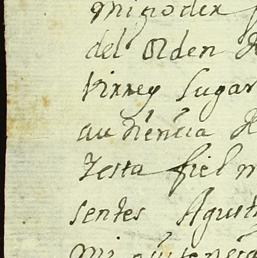 mi poder
del Orden
Virrey Lugar
audiencia
Testa fiel m
sentes Agust
mi